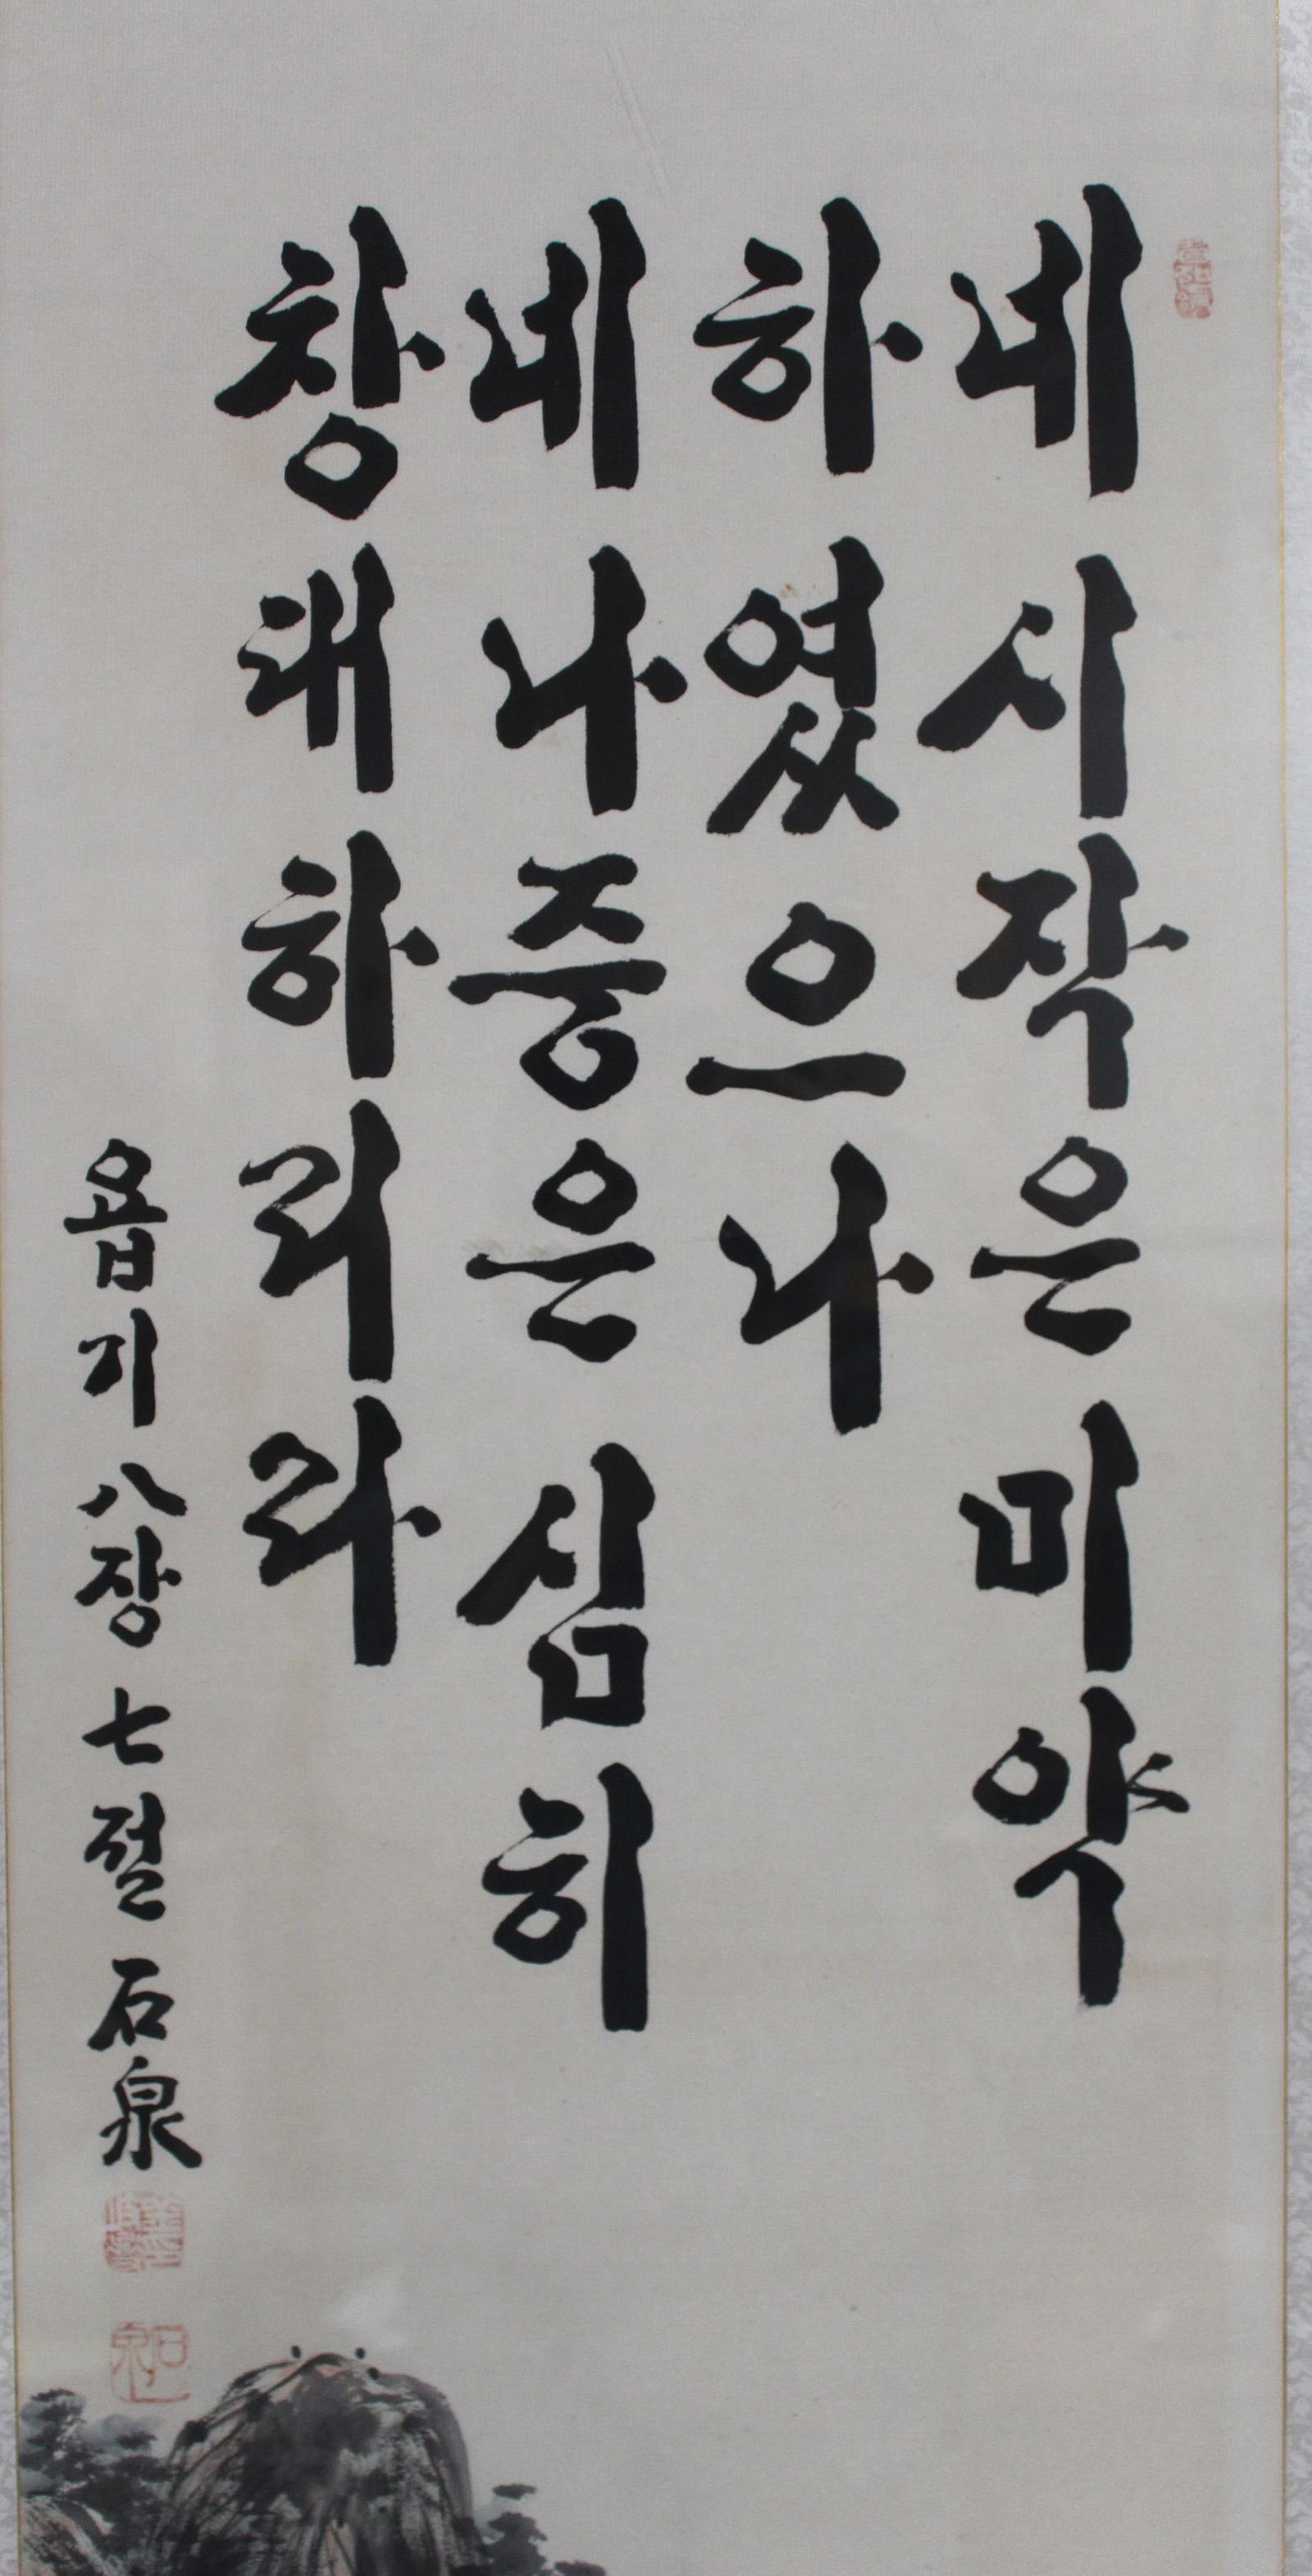 네시작은미약
하였으나
네나중은심히
창대하리라
욥기八장七절 石泉